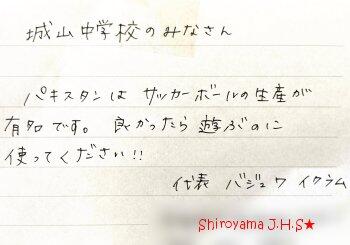 城山中学校のみなさん
パキスタンは サッカーボールの生産が
有名です。良かったら 遊ぶのに
使ってください!!
代表 バジュワ イクラム
Shiroyama J.H.S★